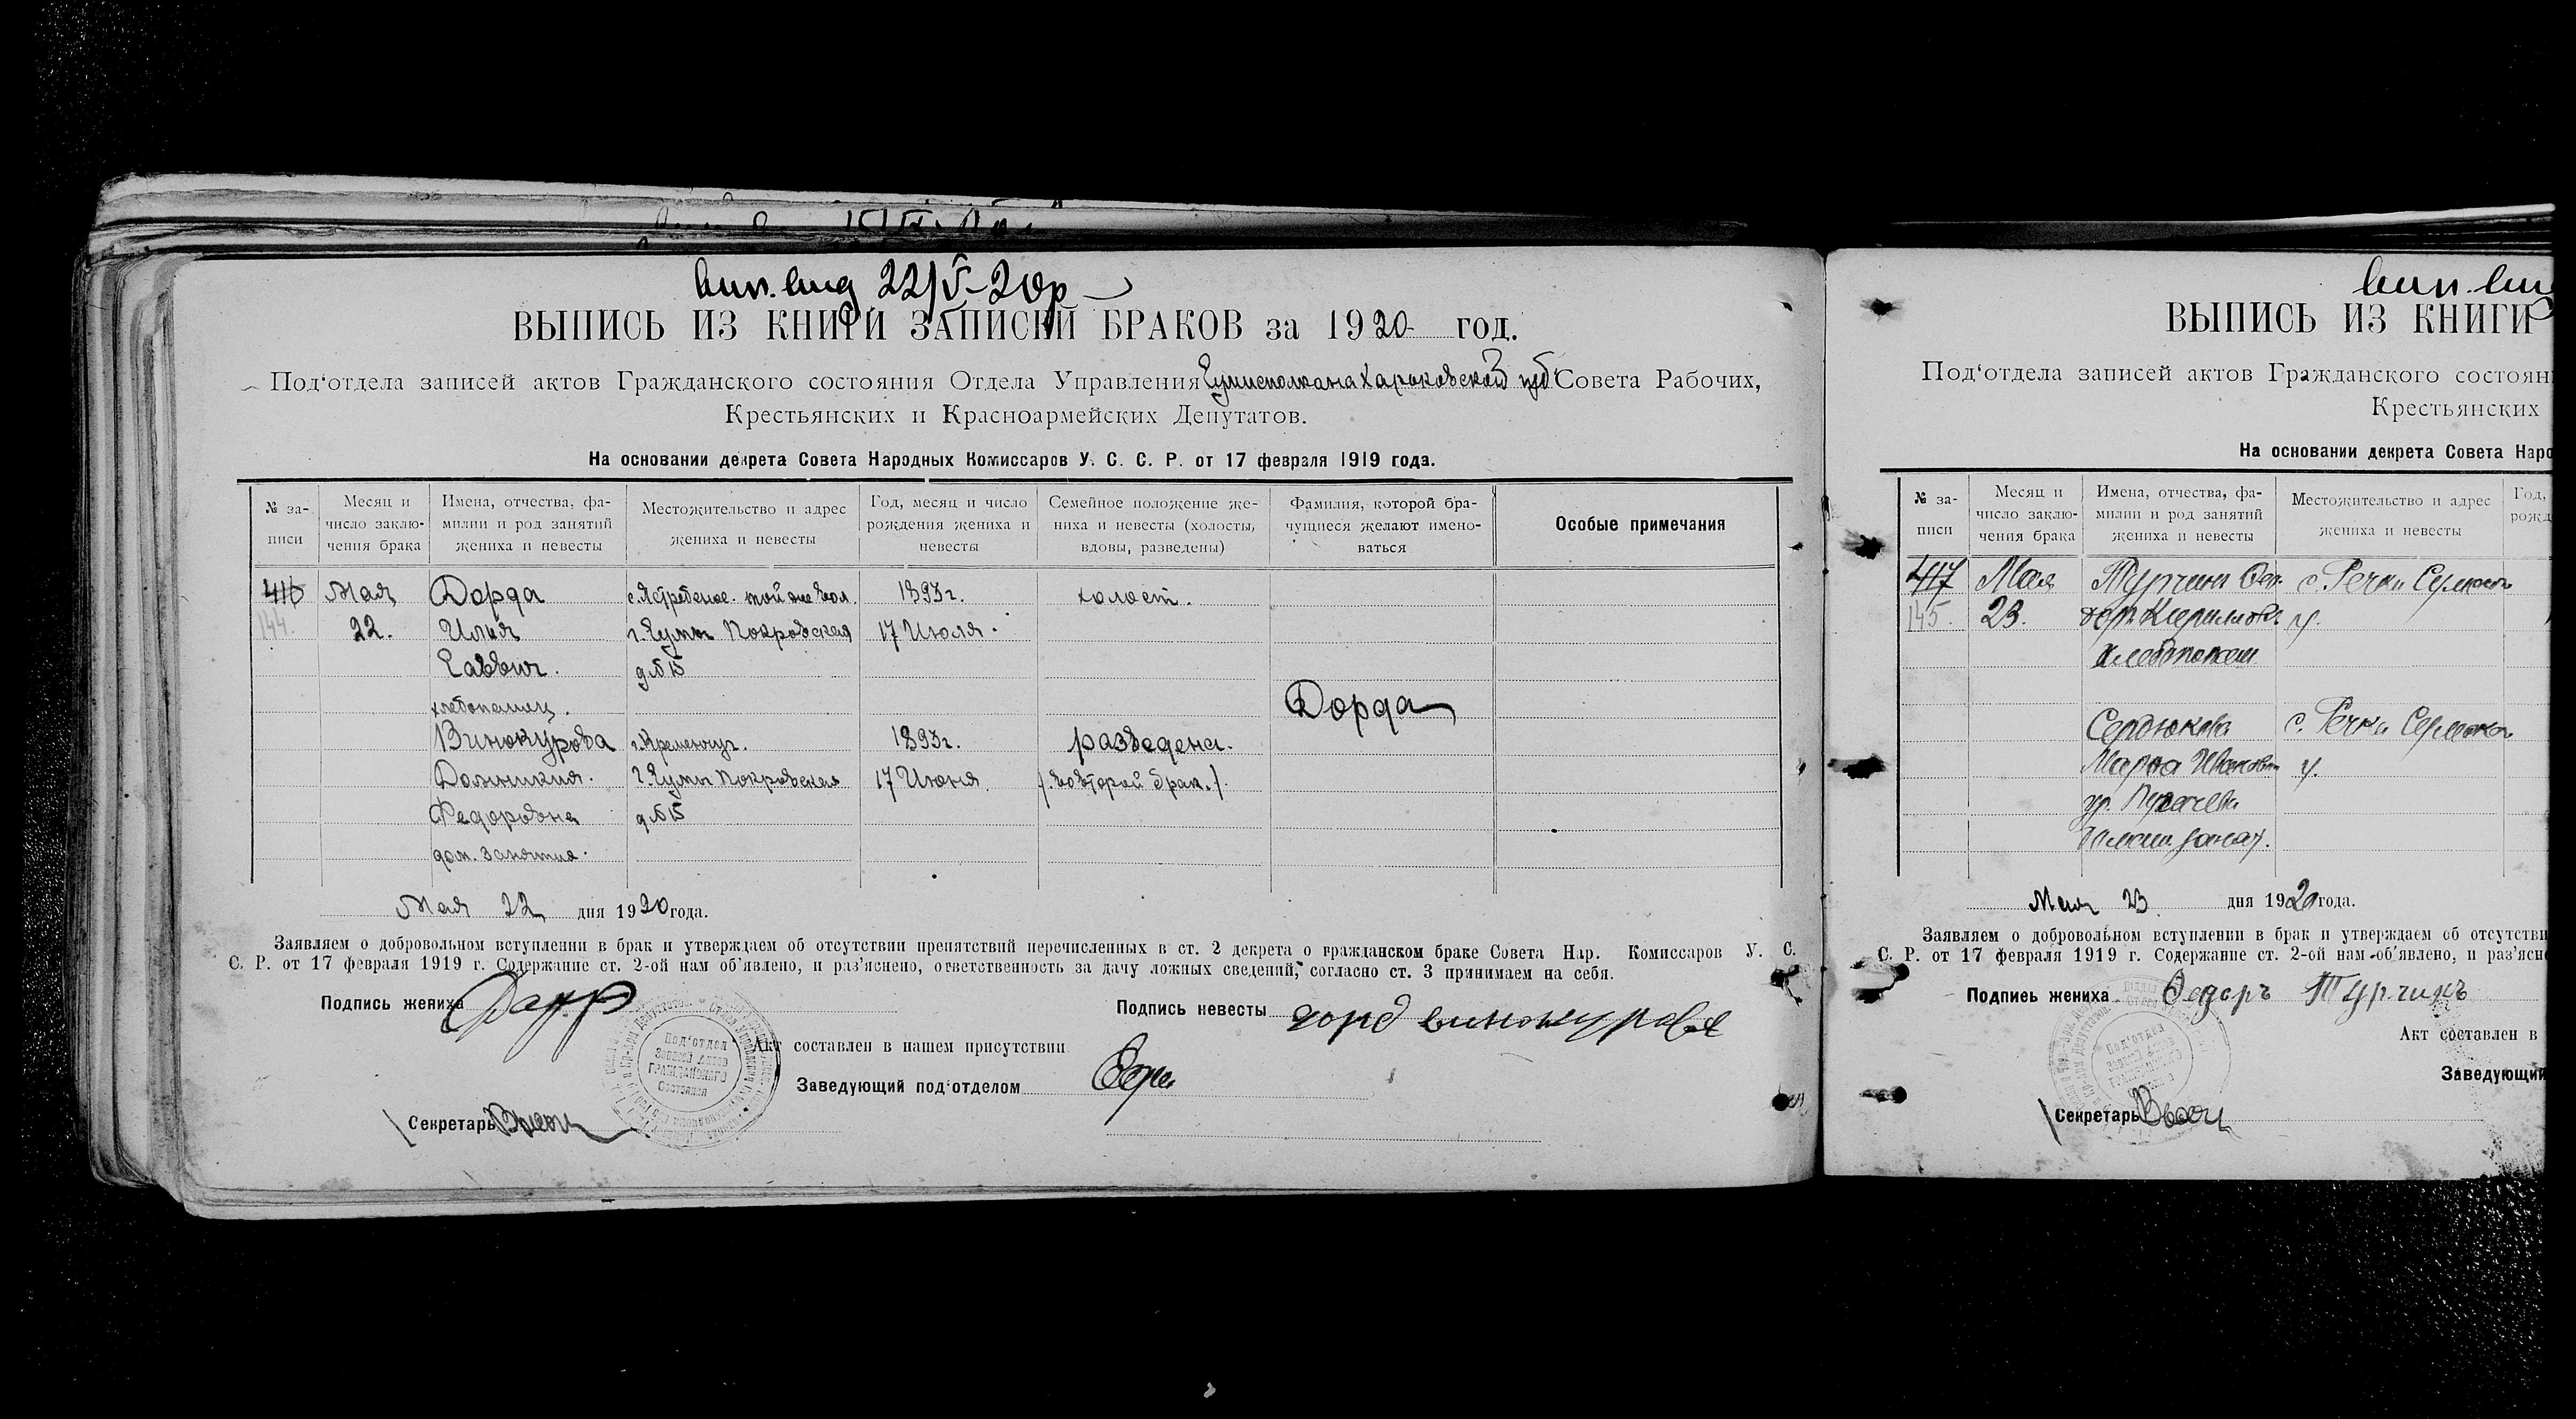 22/V-20р
ВЫПИСЬ ИЗ КНИГИ ЗАПИСЕЙ БРАКОВ за 1920 год.
Под‘отдела записей актов Гражданского состояния Отдела Управления Сумисполкома Харьковской губ. Совета Рабочих,
Крестьянских и Красноармейских Депутатов.
На основании декрета Совета Народных Комиссаров У. С. С. Р. от 17 февраля 1919 года.
№ за-
писи
Месяц и
число заклю-
чения брака
Имена, отчества, фа-
милии и род занятий
жениха и невесты
Местожительство и адрес
жениха и невесты
Год, месяц и число
рождения жениха и
невесты
Семейное положение же-
ниха и невесты (холосты,
вдовы, разведены)
Фамилия, которой бра-
чущиеся желают имено-
ваться
Особые примечания
416 Мая Дорда с. Ястребеное той же вол. 1893г. холост.
144. 22. Илия г. Сумы Покровская 17 Июля.
Саввич. д № 15
хлебопашец.
Дорда
Винокурова г. Кременчуг. 1893г. разведена.
Домникия. г. Сумы Покровская 17 Июня /. во второй брак. /.
Федоровна д № 15
дом. занятия.
Мая 22 дня 1920 года.
Заявляем о добровольном вступлении в брак и утверждаем об отсутствии препятствий перечисленных в ст. 2 декрета о гражданском браке Совета Нар. Комиссаров У. С.
С. Р. от 17 февраля 1919 г. Содержание ст. 2-ой нам об‘явлено, и раз‘яснено, ответственность за дачу ложных сведений, согласно ст. 3 принимаем на себя.
Подпись жениха
Подпись невесты винокурова
Акт составлен в нашем присутствии
Заведующий под‘отделом
Секретарь
Под‘отдел
Записей Актов
ГРАЖДАНСКОГО
Состояния
ВЫПИСЬ ИЗ КНИГИ
Под‘отдела записей актов Гражданского состоян
Крестьянских
На основании декрета Совета Наро
№ за-
писи
Месяц и
число заклю-
чения брака
Имена, отчества, фа-
милии и род занятий
жениха и невесты
Местожительство и адрес
жениха и невесты
Год,
рожд
417 Мая Турчин Фе- с. Речки Сумского
145. 23. дор Кириллович у.
хлебопашец
Сердюкова с. Речки Сумского
Марфа Ивановна у.
домаш. занят.
Мая 23 дня 1920 года.
Заявляем о добровольном вступлении в брак и утверждаем об отсутстви
С. Р. от 17 февраля 1919 г. Содержание ст. 2-ой нам об‘явлено, и раз‘ясне
Подпись жениха Федоръ Турчинъ
Акт составлен в
Заведующий
Секретарь